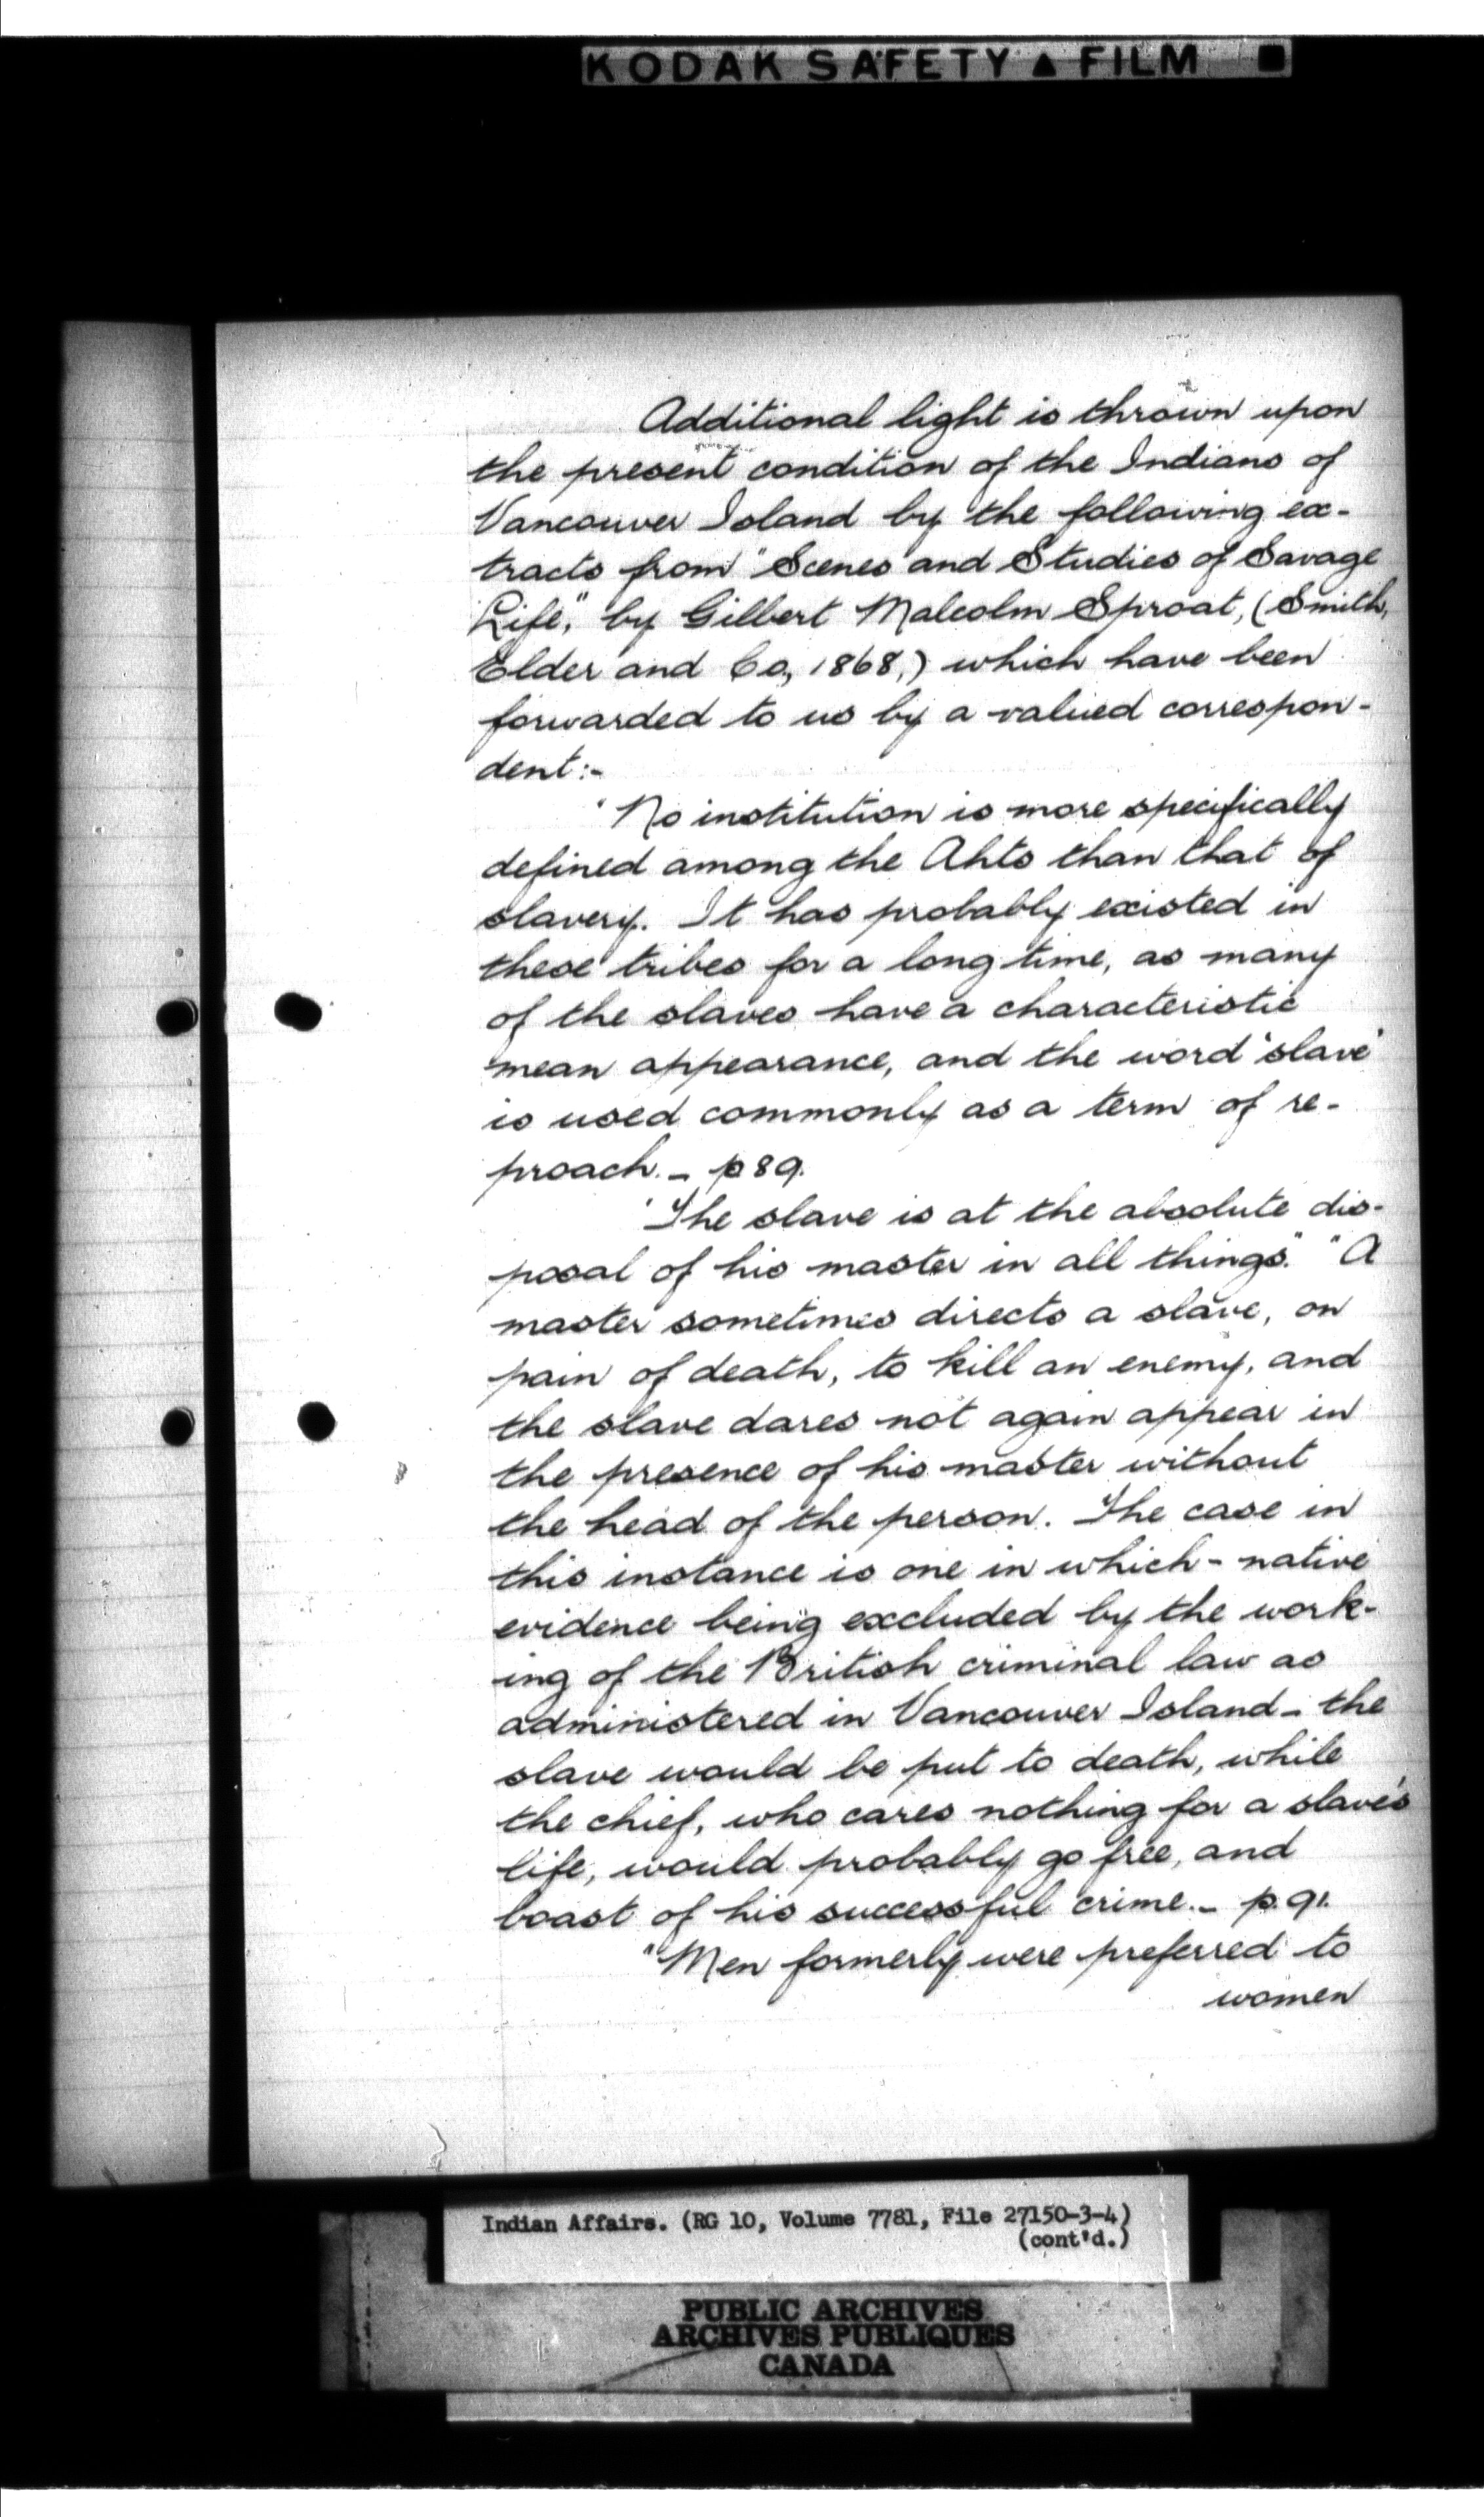 KODAK SAFETY ▲ FILM ■
Additional light is thrown upon
the present condition of the Indians of
Vancouver Island by the following ex-
tracts from "Scenes and Studies of Savage
Life," by Gilbert Malcolm Sproat, (Smith,
Elder and Co, 1868,) which have been
forwarded to us by a valued correspon-
dent:-
"No institution is more specifically
defined among the Ahts than that of
slavery. It has probably existed in
these tribes for a long time, as many
of the slaves have a characteristic
mean appearance, and the word 'slave'
is used commonly as a term of re-
proach. - p89.
"The slave is at the absolute dis-
posal of his master in all things." "A
master sometimes directs a slave, on
pain of death, to kill an enemy, and
the slave dares not again appear in
the presence of his master without
the head of the person. The case in
this instance is one in which - native
evidence being excluded by the work-
ing of the British criminal law as
administered in Vancouver Island - the
slave would be put to death, while
the chief, who cares nothing for a slave's
life, would probably go free, and
boast of his successful crime. - p.91.
"Men formerly were preferred to
women
Indian Affairs. (RG 10, Volume 7781, File 27150-3-4)
(cont'd.)
PUBLIC ARCHIVES
ARCHIVES PUBLIQUES
CANADA